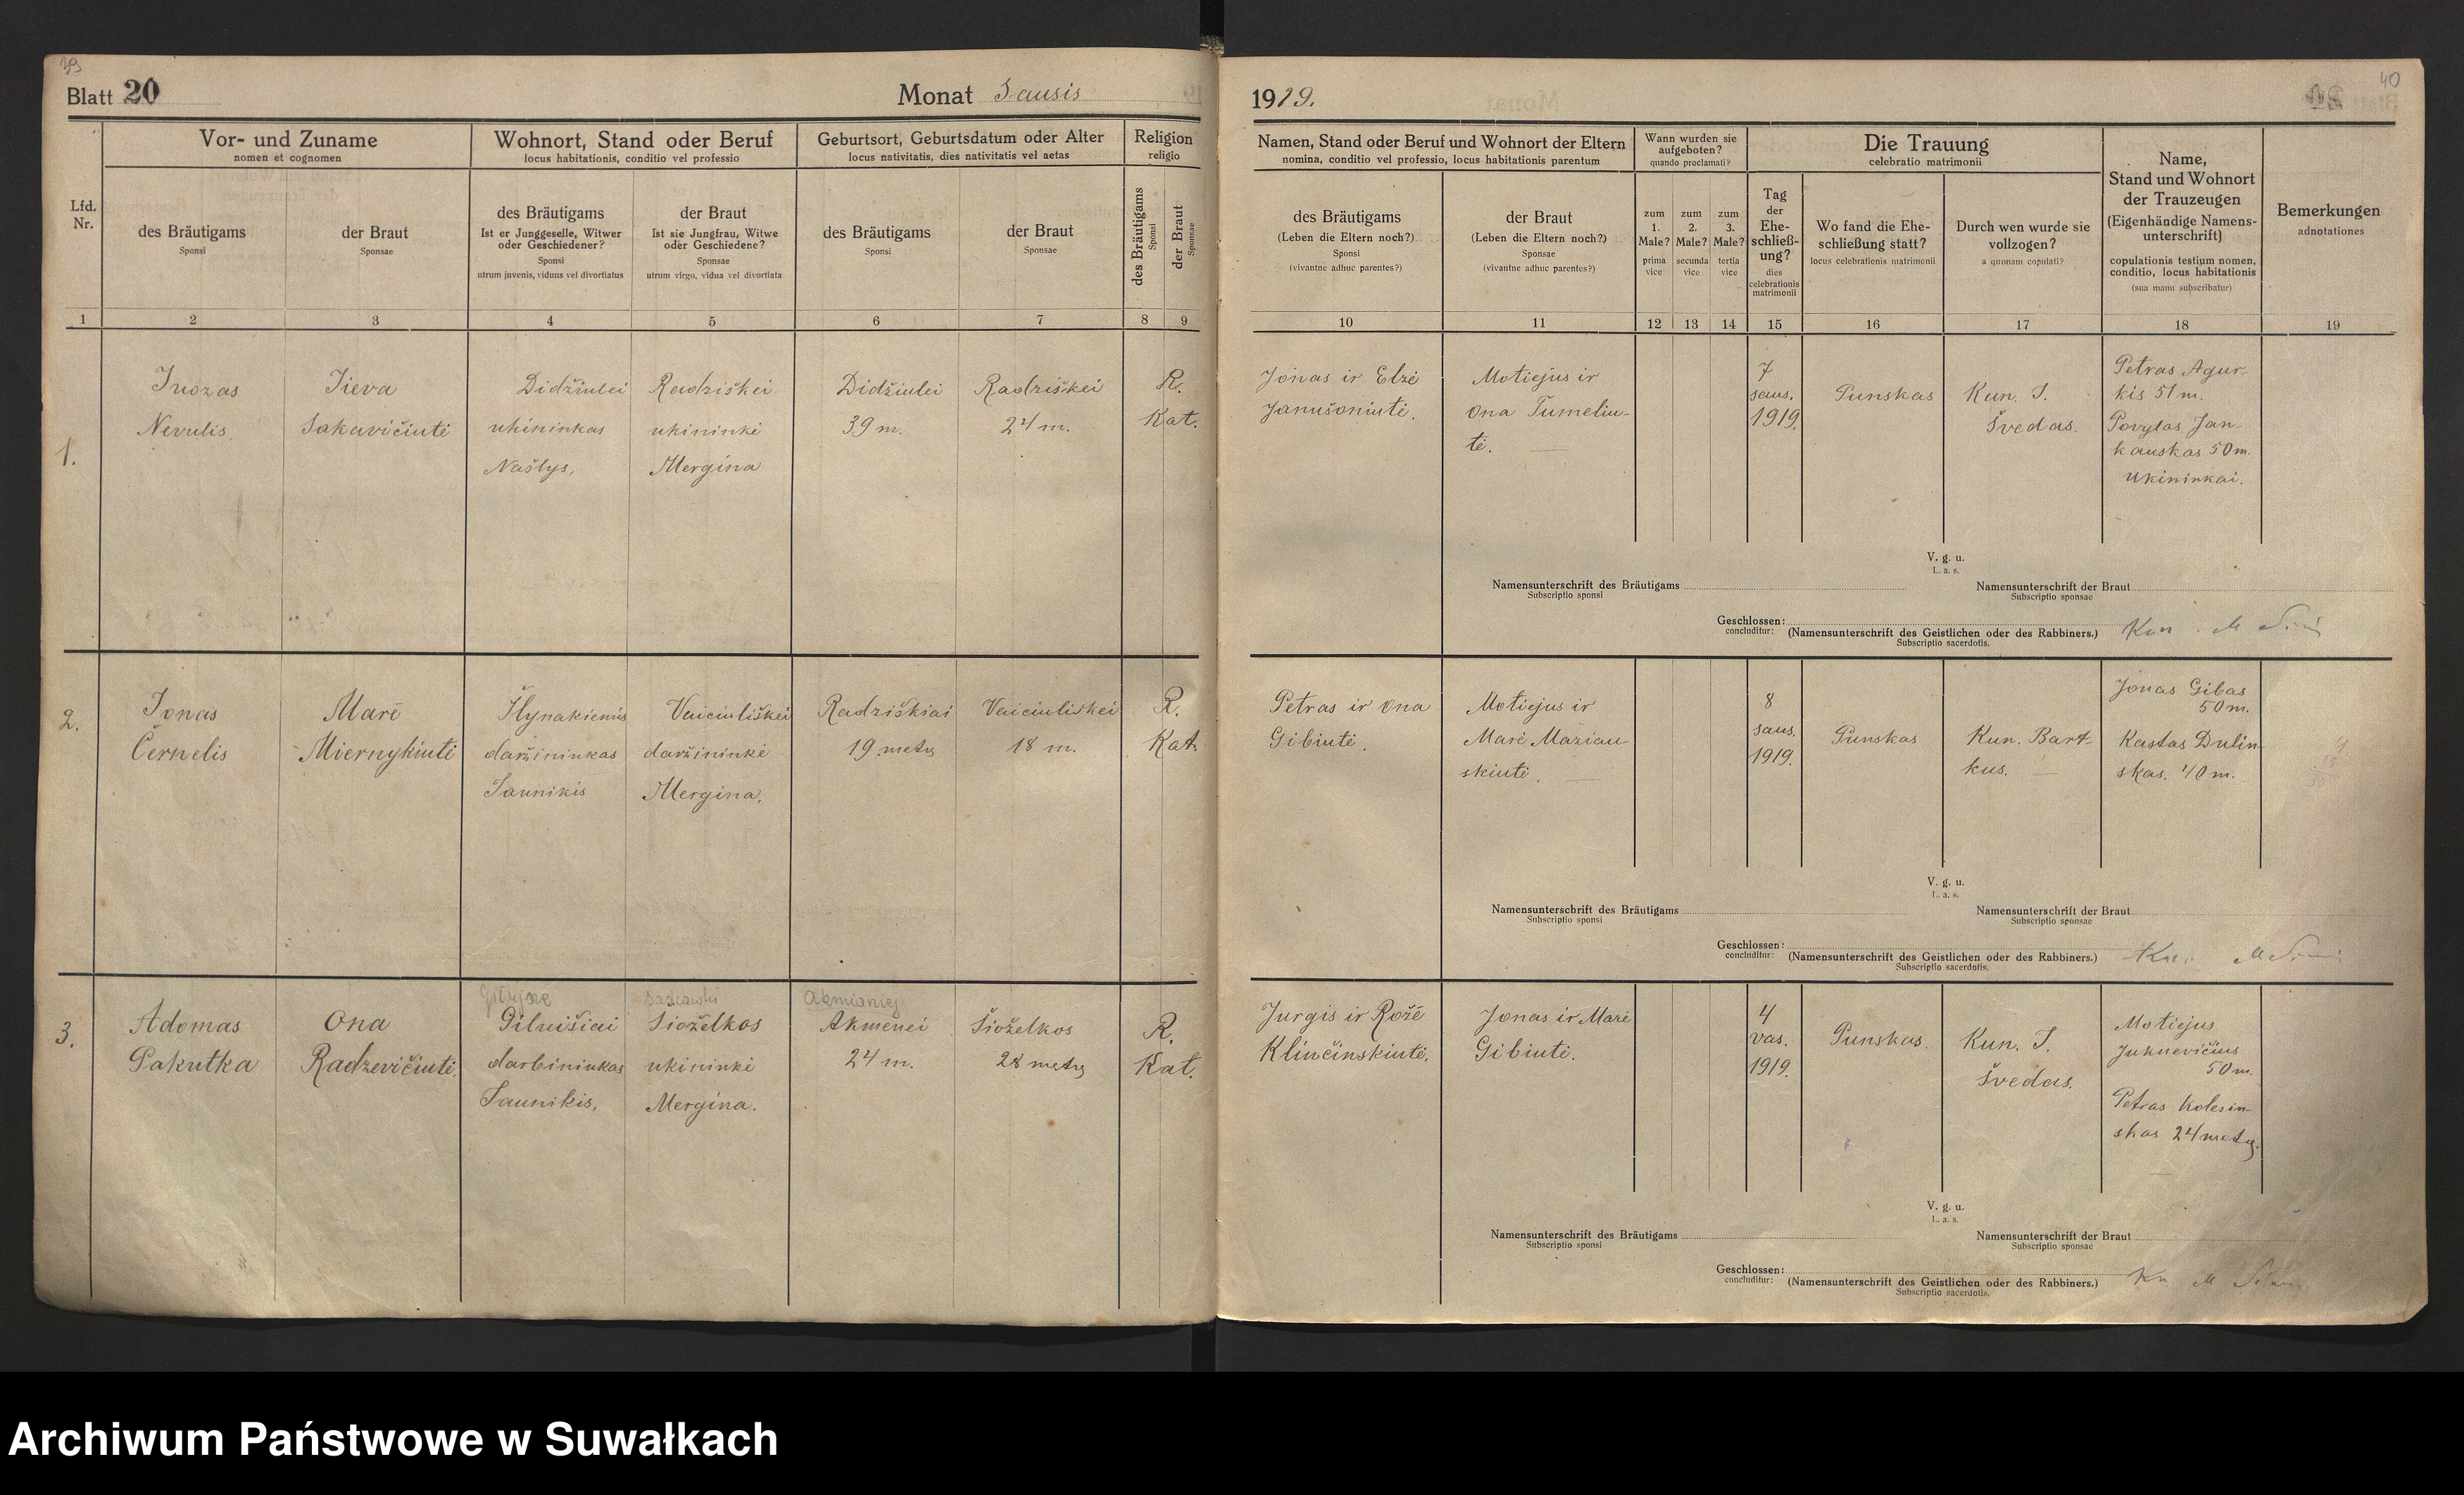 39
Blatt 20
Monat Sausis
Vor- und Zuname
nomen et cognomen
Wohnort, Stand oder Beruf
locus habitationis, conditio vel professio
Geburtsort, Geburtsdatum oder Alter
locus nativitatis, dies nativitatis vel aetas
Religion
religio
Lfd.
Nr.
des Bräutigams
Sponsi
der Braut
Sponsae
des Bräutigams
Ist er Junggeselle, Witwer
oder Geschiedener?
Sponsi
utrum juvenis, viduus vel divortiatus
der Braut
Ist sie Jungfrau, Witwe
oder Geschiedene?
Sponsae
utrum virgo, vidua vel divortiata
des Bräutigams
Sponsi
der Braut
Sponsae
des Bräutigams
Sponsi
der Braut
Sponsae
1 2 3 4 5 6 7 8 9
1.
Juozas
Nevulis.
Jieva
Sakavičiutė
Didžiulei
ukininkas
Našlys.
Radziškei
ukininkė
Mergina
Didžiulei
39 m.
Radziškei
24 m.
R.
Kat.
2.
Jonas
Černelis
Marė
Miernykiutė
daržininkas
Jaunikis
Vaiciuliškei
daržininkė
Mergina.
Radziškiai
19 metų
Vaiciuliškei
18 m.
R.
Kat.
3.
Adomas
Pakutka
Ona
Radzevičiutė.
Giluišiai
darbininkas
Jaunikis.
Sioželkos
ukininkė
Mergina.
Akmenei
24 m.
Šioželkos
28 metų
R.
Kat.
1919.
40
Namen, Stand oder Beruf und Wohnort der Eltern
nomina, conditio vel professio, locus habitationis parentum
Wann wurden sie
aufgeboten?
quando proclamati?
Die Trauung
celebratio matrimonii
Name,
Stand und Wohnort
der Trauzeugen
(Eigenhändige Namens-
unterschrift)
copulationis testium nomen,
conditio, locus habitationis
(sua manu subscribatur)
Bemerkungen
adnotationes
des Bräutigams
(Leben die Eltern noch?)
Sponsi
(vivantne adhuc parentes?)
der Braut
(Leben die Eltern noch?)
Sponsae
(vivantne adhuc parentes?)
zum
1.
Male?
prima
vice
zum
2.
Male?
secunda
vice
zum
3.
Male?
tertia
vice
Tag
der
Ehe-
schließ-
ung?
dies
celebrationis
matrimonii
Wo fand die Ehe-
schließung statt?
locus celebrationis matrimonii
Durch wen wurde sie
vollzogen?
a quonam copulati?
10 11 12 13 14 15 16 17 18 19
Jonas ir Elzė
Janušoniutė.
Motiejus ir
Ona Tumeliu-
tė.
7
saus.
1919.
Punskas
Kun. J.
Švedas.
Petras Agur-
kis 51 m.
Povylas Jan-
kauskas 50 m.
ukininkai.
V. g. u.
L. a. s.
Namensunterschrift des Bräutigams
Subscriptio sponsi
Namensunterschrift der Braut
Subscriptio sponsae
Geschlossen:
concluditur:
(Namensunterschrift des Geistlichen oder des Rabbiners.)
Subscriptio sacerdotis.
Kun. M
Petras ir Ona
Gibiutė.
Motiejus ir
Marė Maziau-
skiutė.
8
saus.
1919.
Punskas
Kun. Bart-
kus.
Jonas Gibas
50 m.
Kastas Dulin-
skas. 40 m.
V. g. u.
L. a. s.
Namensunterschrift des Bräutigams
Subscriptio sponsi
Namensunterschrift der Braut
Subscriptio sponsae
Geschlossen:
concluditur:
(Namensunterschrift des Geistlichen oder des Rabbiners.)
Subscriptio sacerdotis.
Kun. M
Jurgis ir Rožė
Klinčinskiutė.
Jonas ir Marė
Gibiutė.
4
vas.
1919.
Punskas.
Kun. J.
Švedas.
Motiejus
Juknevičius
50 m.
Petras Kolesin-
skas 24 metų.
V. g. u.
L. a. s.
Namensunterschrift des Bräutigams
Subscriptio sponsi
Namensunterschrift der Braut
Subscriptio sponsae
Geschlossen:
concluditur:
(Namensunterschrift des Geistlichen oder des Rabbiners.)
Subscriptio sacerdotis.
Kn M
Archiwum Państwowe w Suwałkach